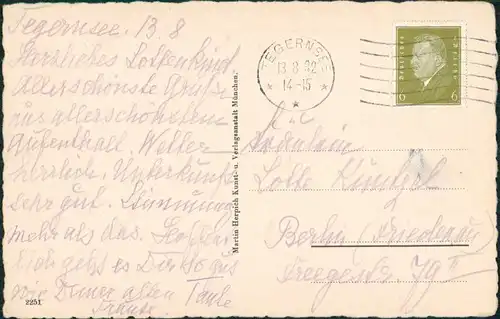 Tegernsee, 13.8
Herzliches Lottenkind,
Allerschönste Grüße
aus allerschönstem
Aufenthalt. Wetter
herrlich, Unterkunft
sehr gut. Stimmung
mehr als das.
geht es Dir so gut
wie Deiner alten Tante
TEGERNSEE
13.8.32
14-15
Deutsches Reich
6 6
Martin Herpich Kunst- u. Verlagsanstalt München.
Fräulein
Lotte Künzel
Berlin (Friedenau)
2251